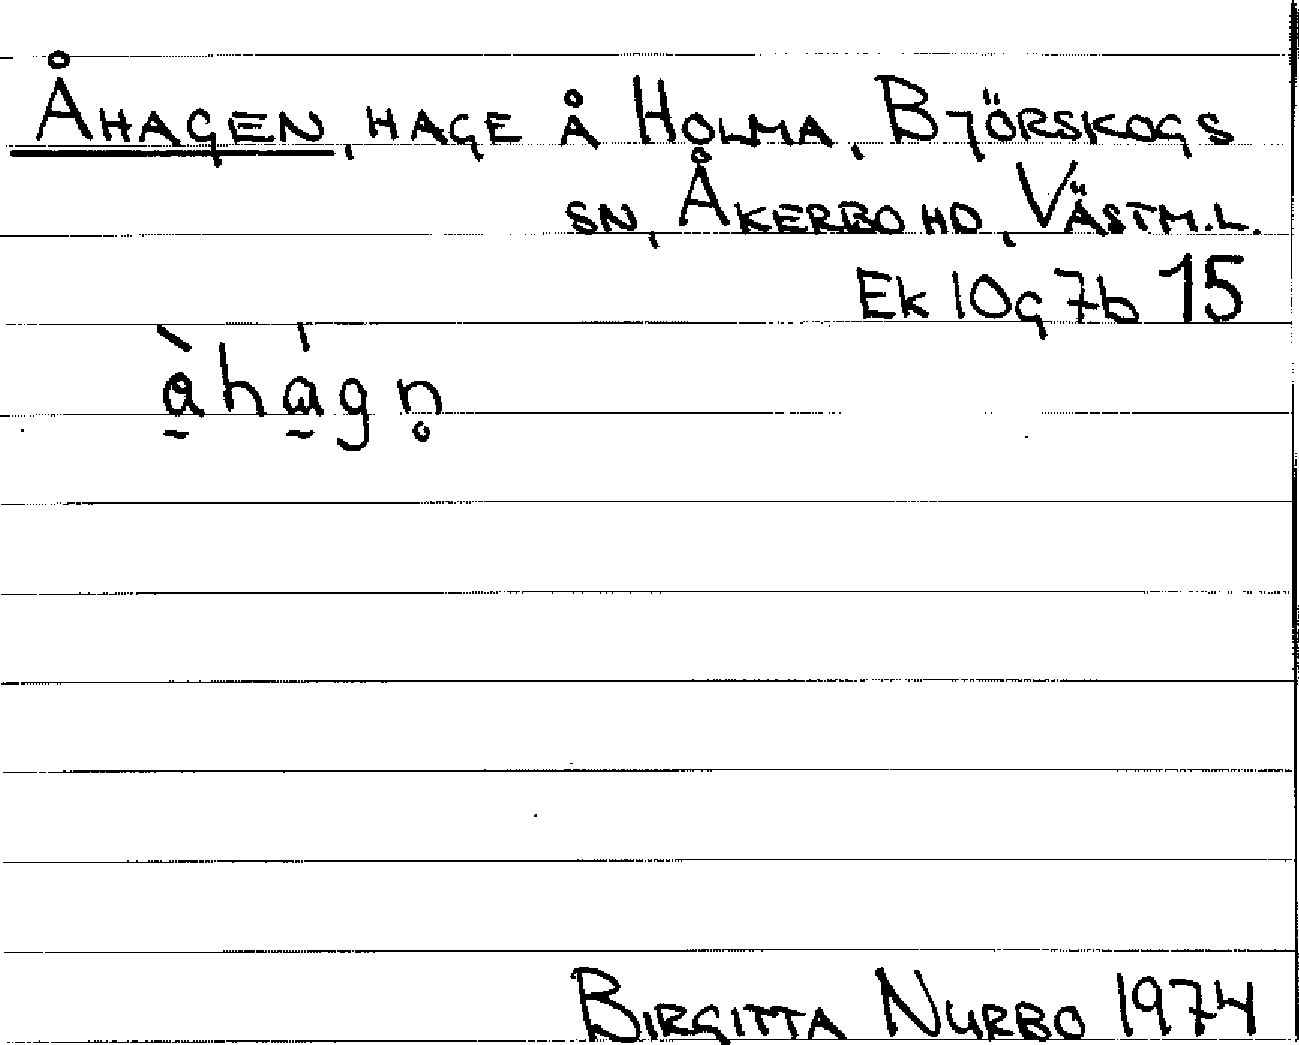 ÅHAGEN, HAGE Å HOLMA, BJÖRSKOGS
SN, ÅKERBO HD, VÄSTM.L.
Ek 10g 7b 15
BIRGITTA NURBO 1974